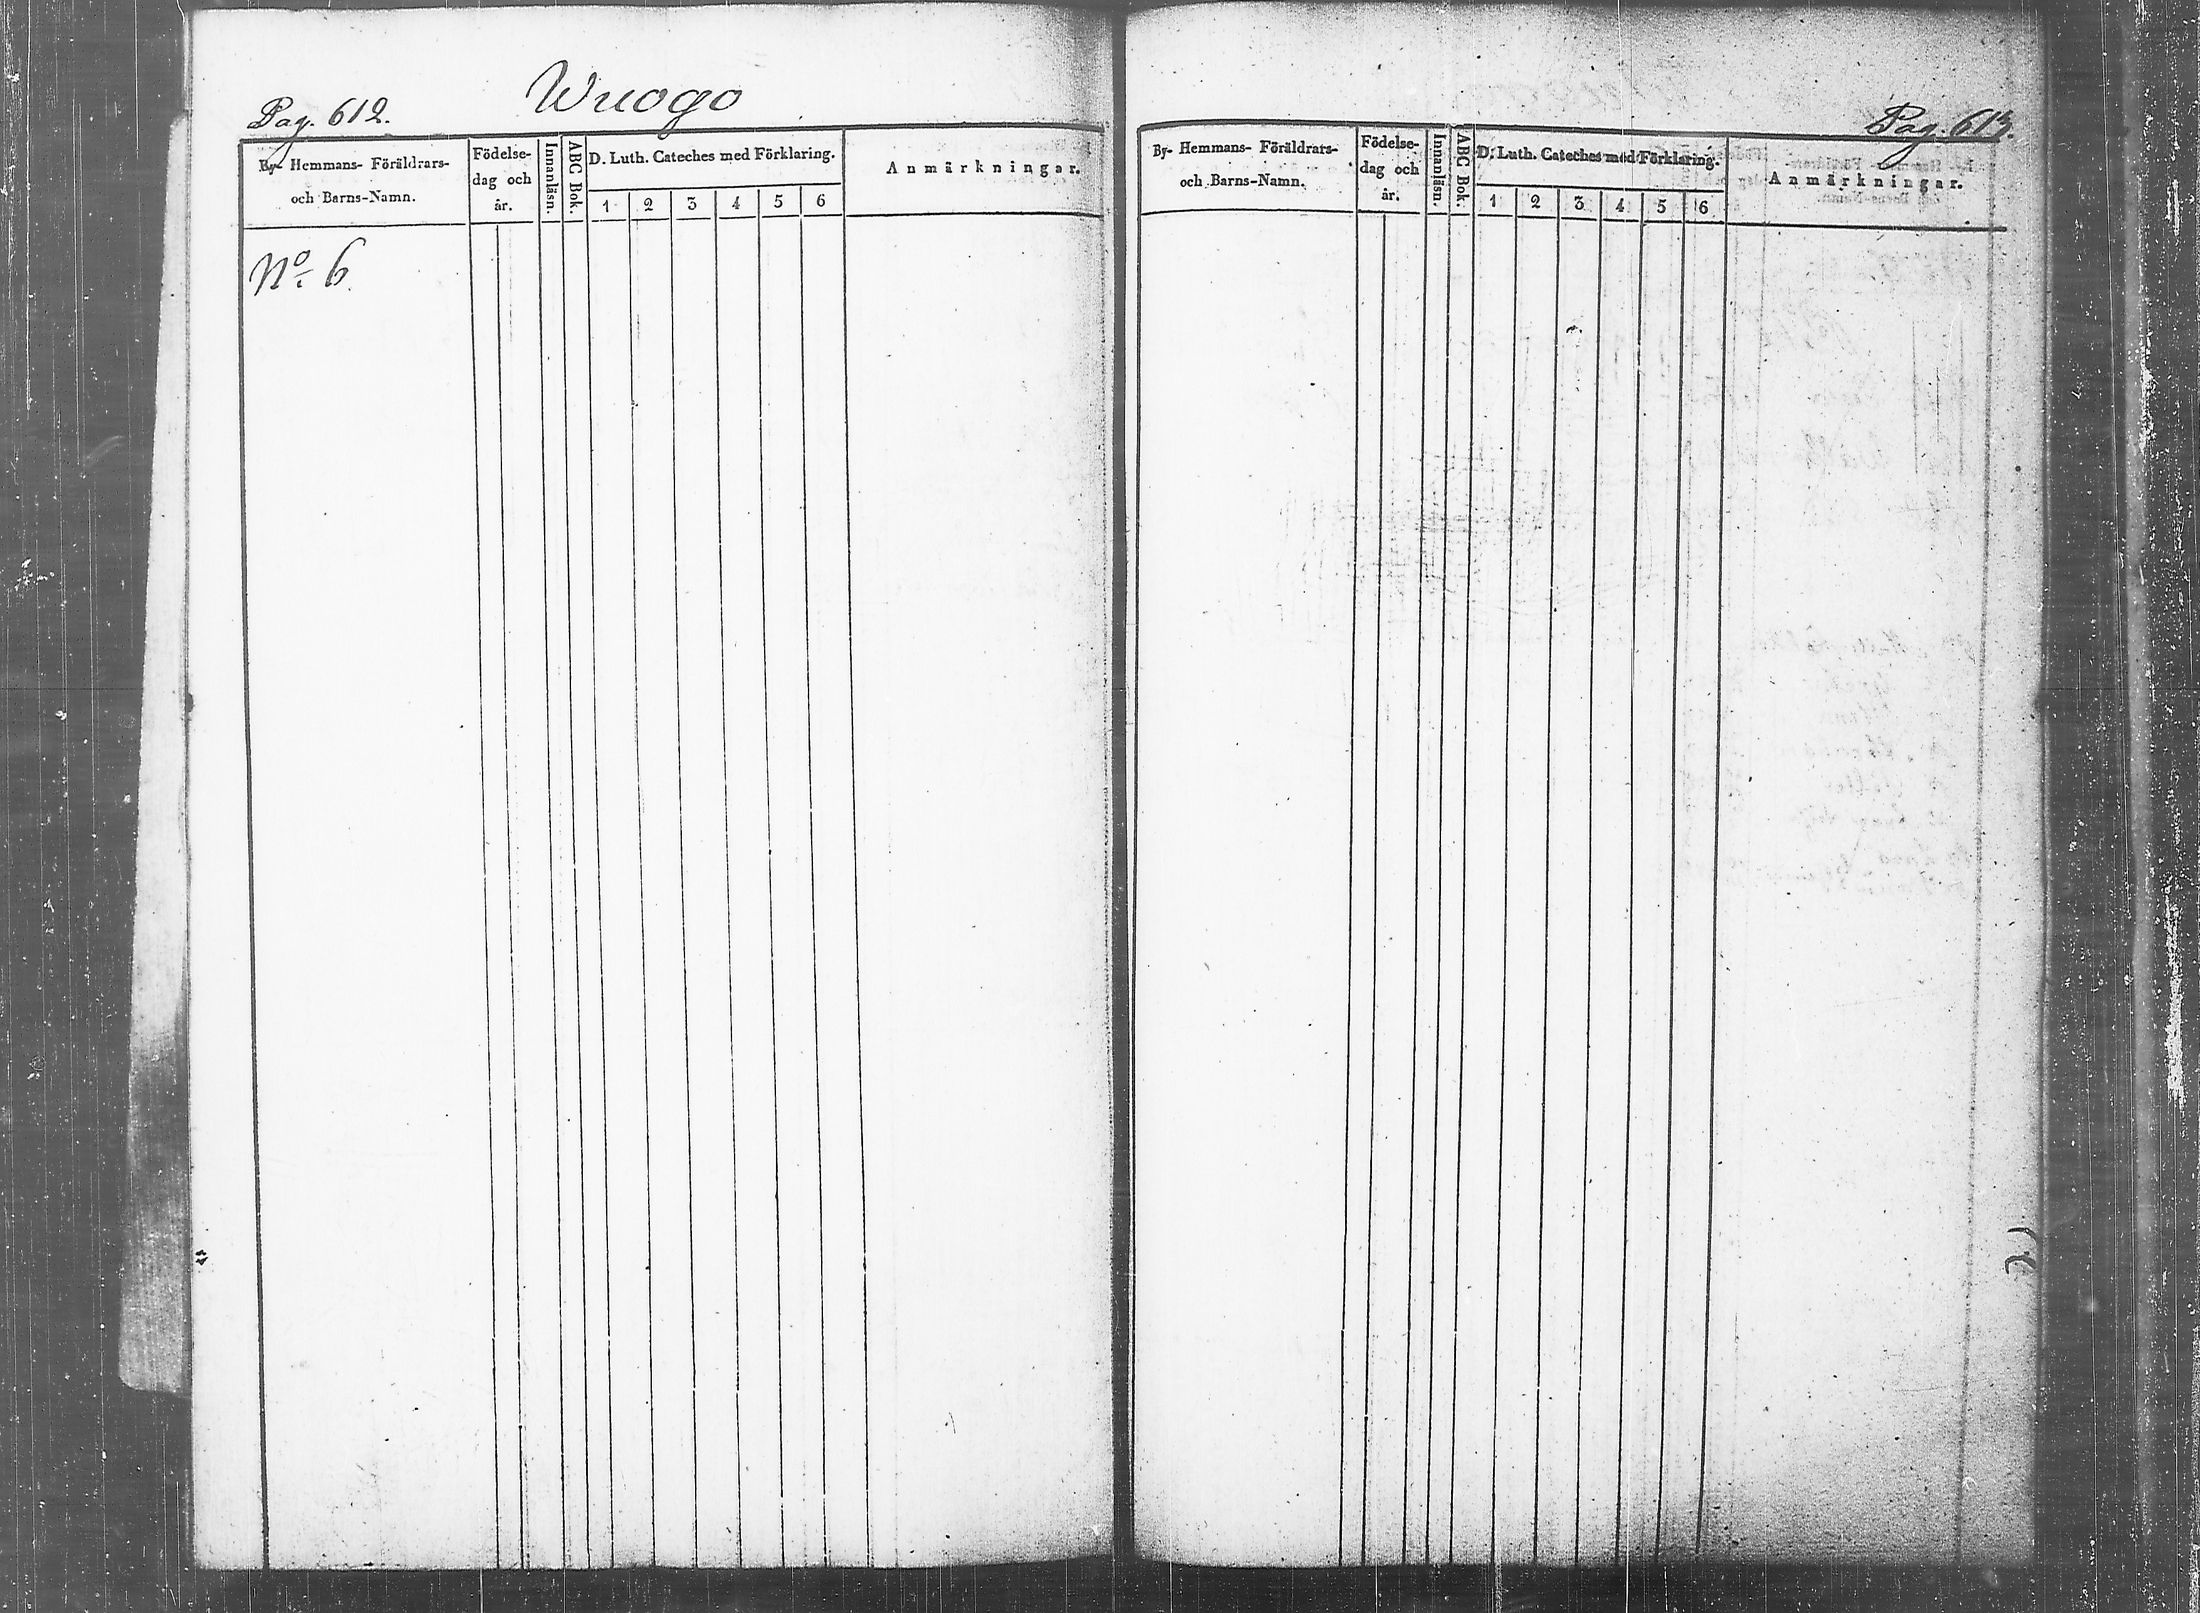 Wuogo
Pag. 612.
By- Hemmans- Föräldrars-
och Barns-Namn.
Födelse-
dag och
år.
Innanläsn.
ABC Bok.
D. Luth. Cateches med Förklaring.
1 2 3 4 5 6
Anmärkningar.
No 6
Pag. 613.
By- Hemmans- Föräldrars-
och Barns-Namn.
Födelse-
dag och
år.
Innanläsn.
ABC Bok.
D. Luth. Cateches med Förklaring.
1 2 3 4 5 6
Anmärkningar.